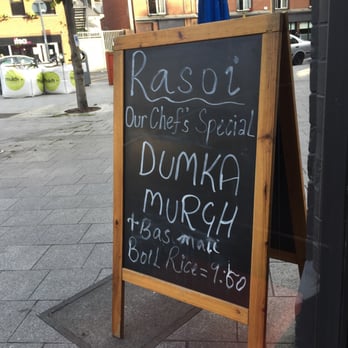 Rasoi
Our Chef's Special
DUMKA
MURGH
+ Basmati
Boil Rice = 9.50